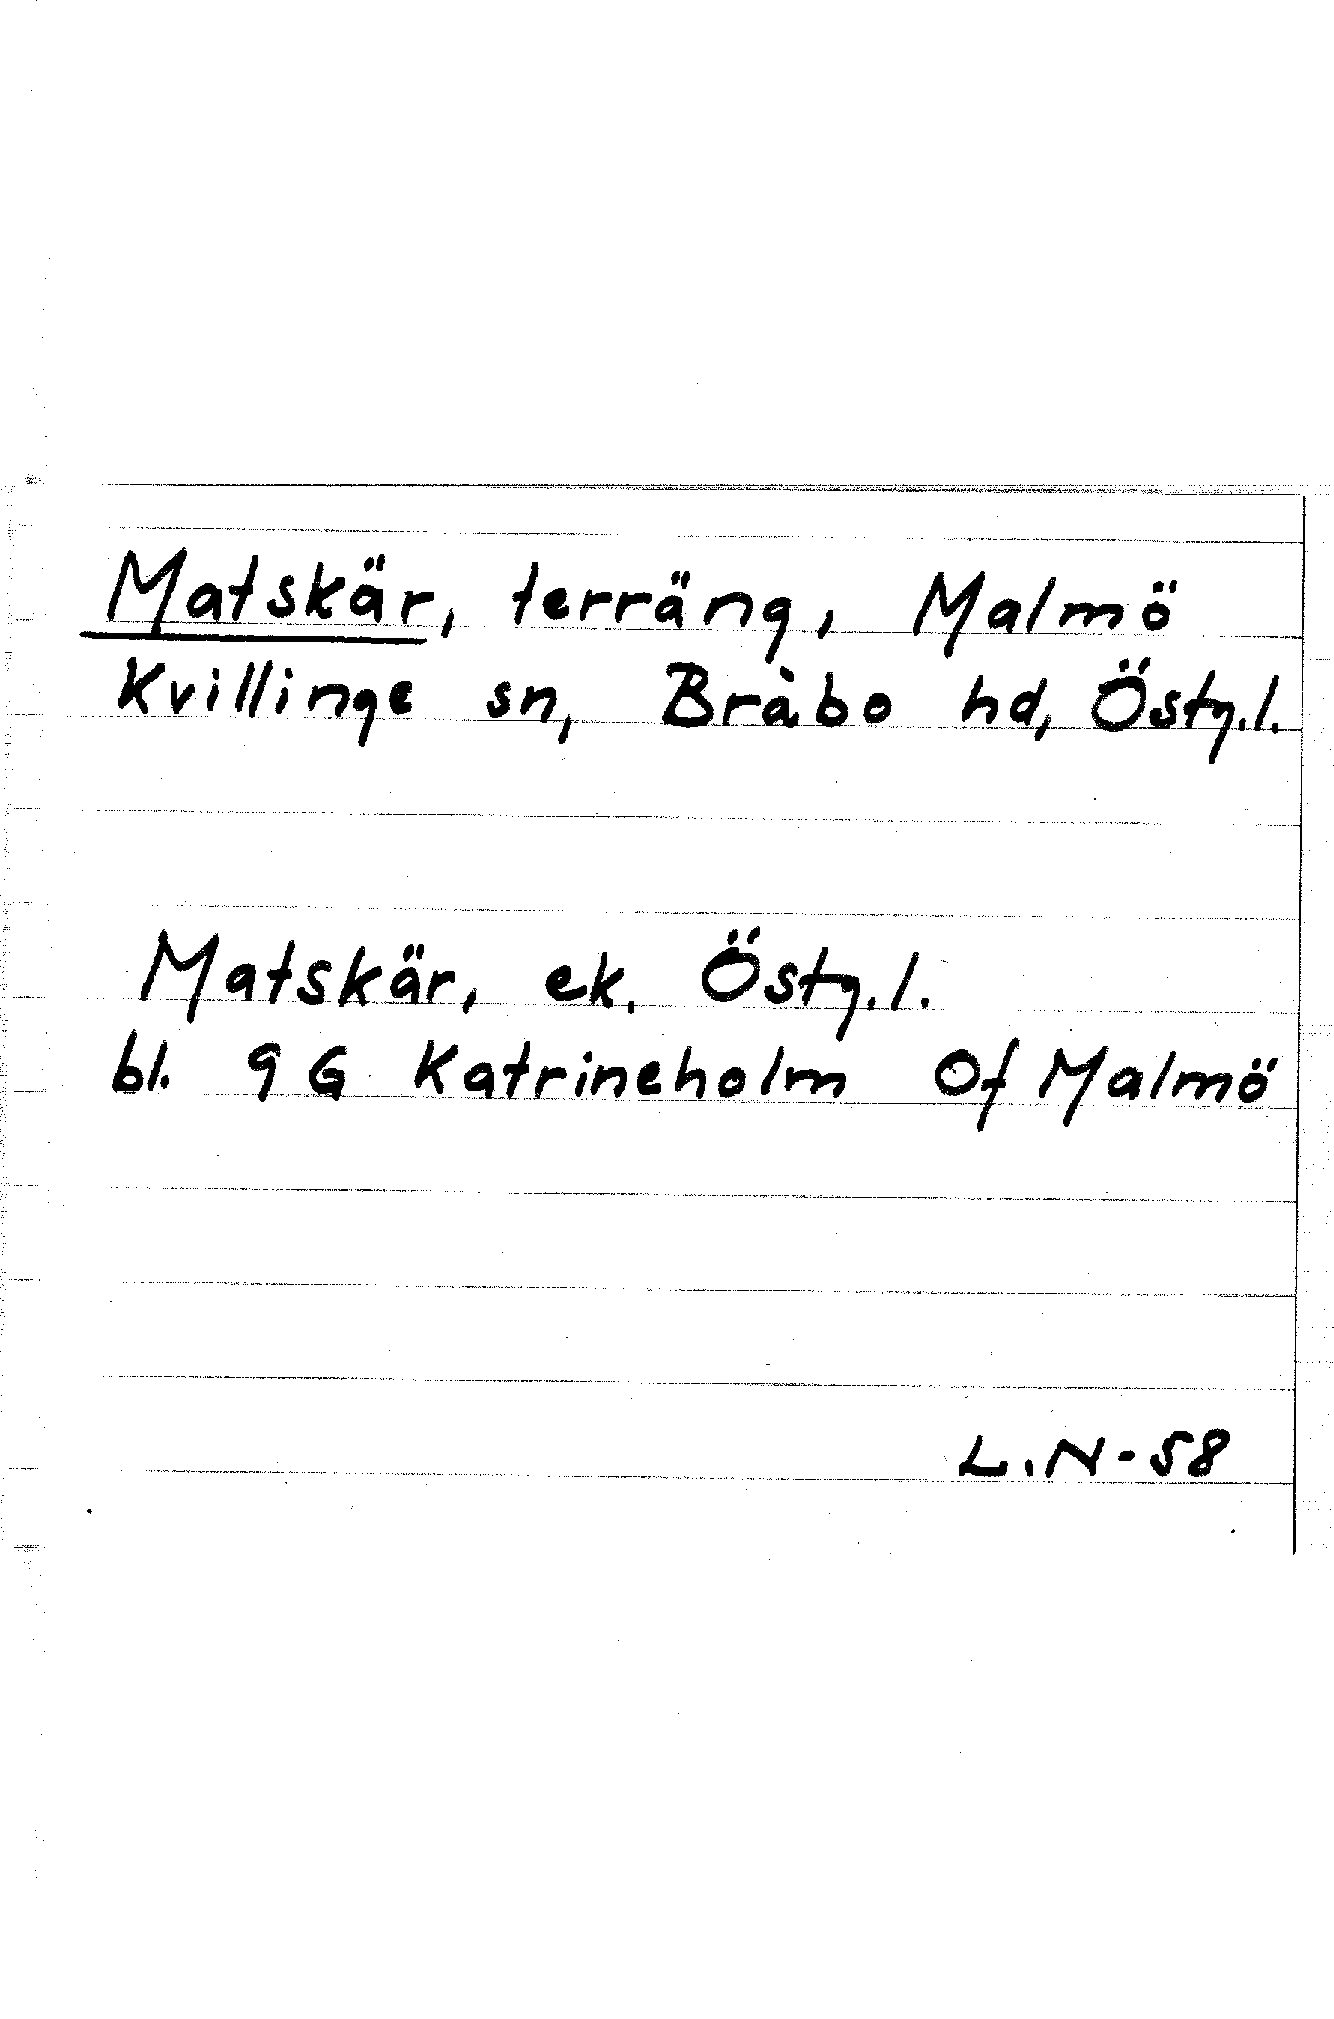 Matskär, terräng, Malmö
Kvillinge sn, Bråbo hd, Östg.l.
Matskär, ek. Östg.l.
bl. 9 G Katrineholm Of Malmö
L.N-58